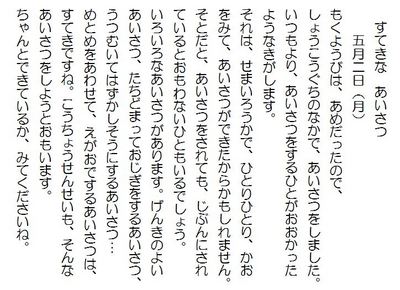 すてきな　あいさつ
五月二日（月）
もくようびは、あめだったので、
しょうこうぐちのなかで、あいさつをしました。
いつもより、あいさつをするひとがおおかった
ようなきがします。
それは、せまいろうかで、ひとりひとり、かお
をみて、あいさつができたからかもしれません。
そとだと、あいさつをされても、じぶんにされ
ているとおもわないひともいるでしょう。
いろいろなあいさつがあります。げんきのよい
あいさつ、たちどまっておじぎをするあいさつ、
うつむいてはずかしそうにするあいさつ…
めとめをあわせて、えがおでするあいさつは、
すてきですね。こうちょうせんせいも、そんな
あいさつをしようとおもいます。
ちゃんとできているか、みてくださいね。